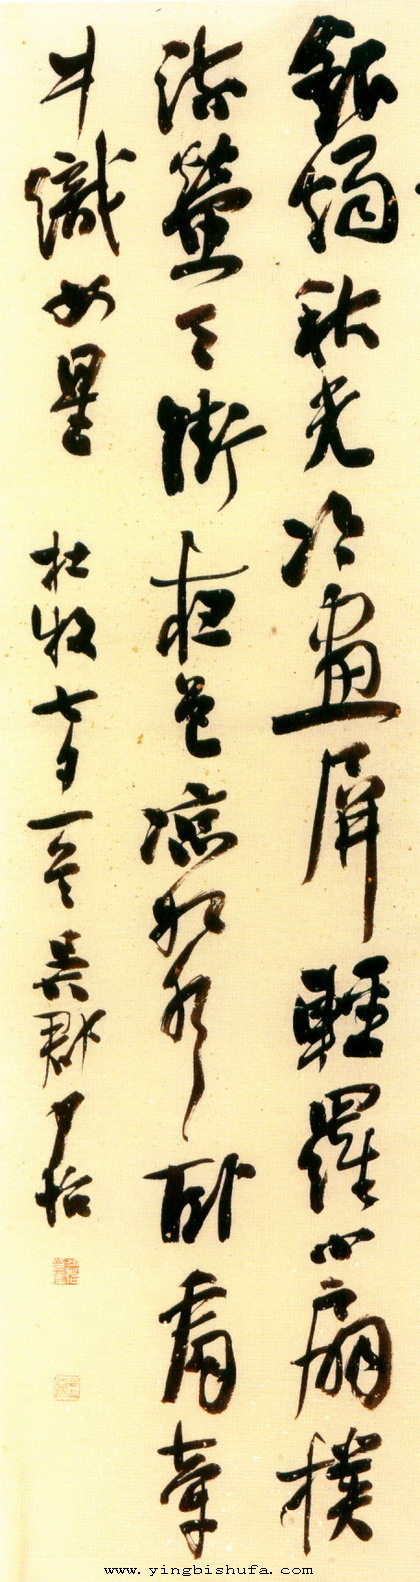 銀燭秋光冷畫屏輕羅小扇撲
流螢天街夜色涼如水臥看牽
牛織女星 杜牧七夕一首吳郡
www.yingbishufa.com